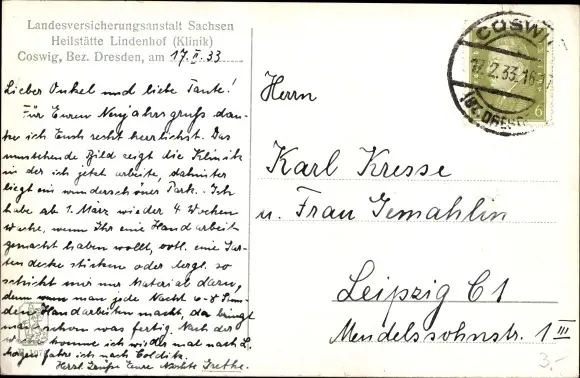 Landesversicherungsanstalt Sachsen
Heilstätte Lindenhof (Klinik)
Coswig, Bez. Dresden, am 17.II.33
Lieber Onkel und liebe Tante!
Für Euren Neujahrsgruß dan-
ke ich Euch recht herzlichst. Das
umstehende Bild zeigt die Klinik
in der ich jetzt arbeite, dahinter
liegt ein wunderschöner Park. Ich
habe ab 1. März wieder 4 Wochen
Wache, wenn Ihr eine Handarbeit
gemacht haben wollt, evtl. eine Gar-
tendecke sticken oder dergl. so
schickt mir nur Material dazu,
denn man jede Nacht 6-8 Stun-
den Handarbeiten macht, da bringt
man schon was fertig. Nach der
komme ich wieder mal nach L.
fahre ich nach Colditz.
Herzl. Grüße Eure Nichte Grethe.
COSWIG
17.2.33.16-17
(BZ. DRESD
6
Herrn
Karl Kresse
u. Frau Gemahlin
Leipzig C 1
Mendelssohnstr. 1 III
3.-